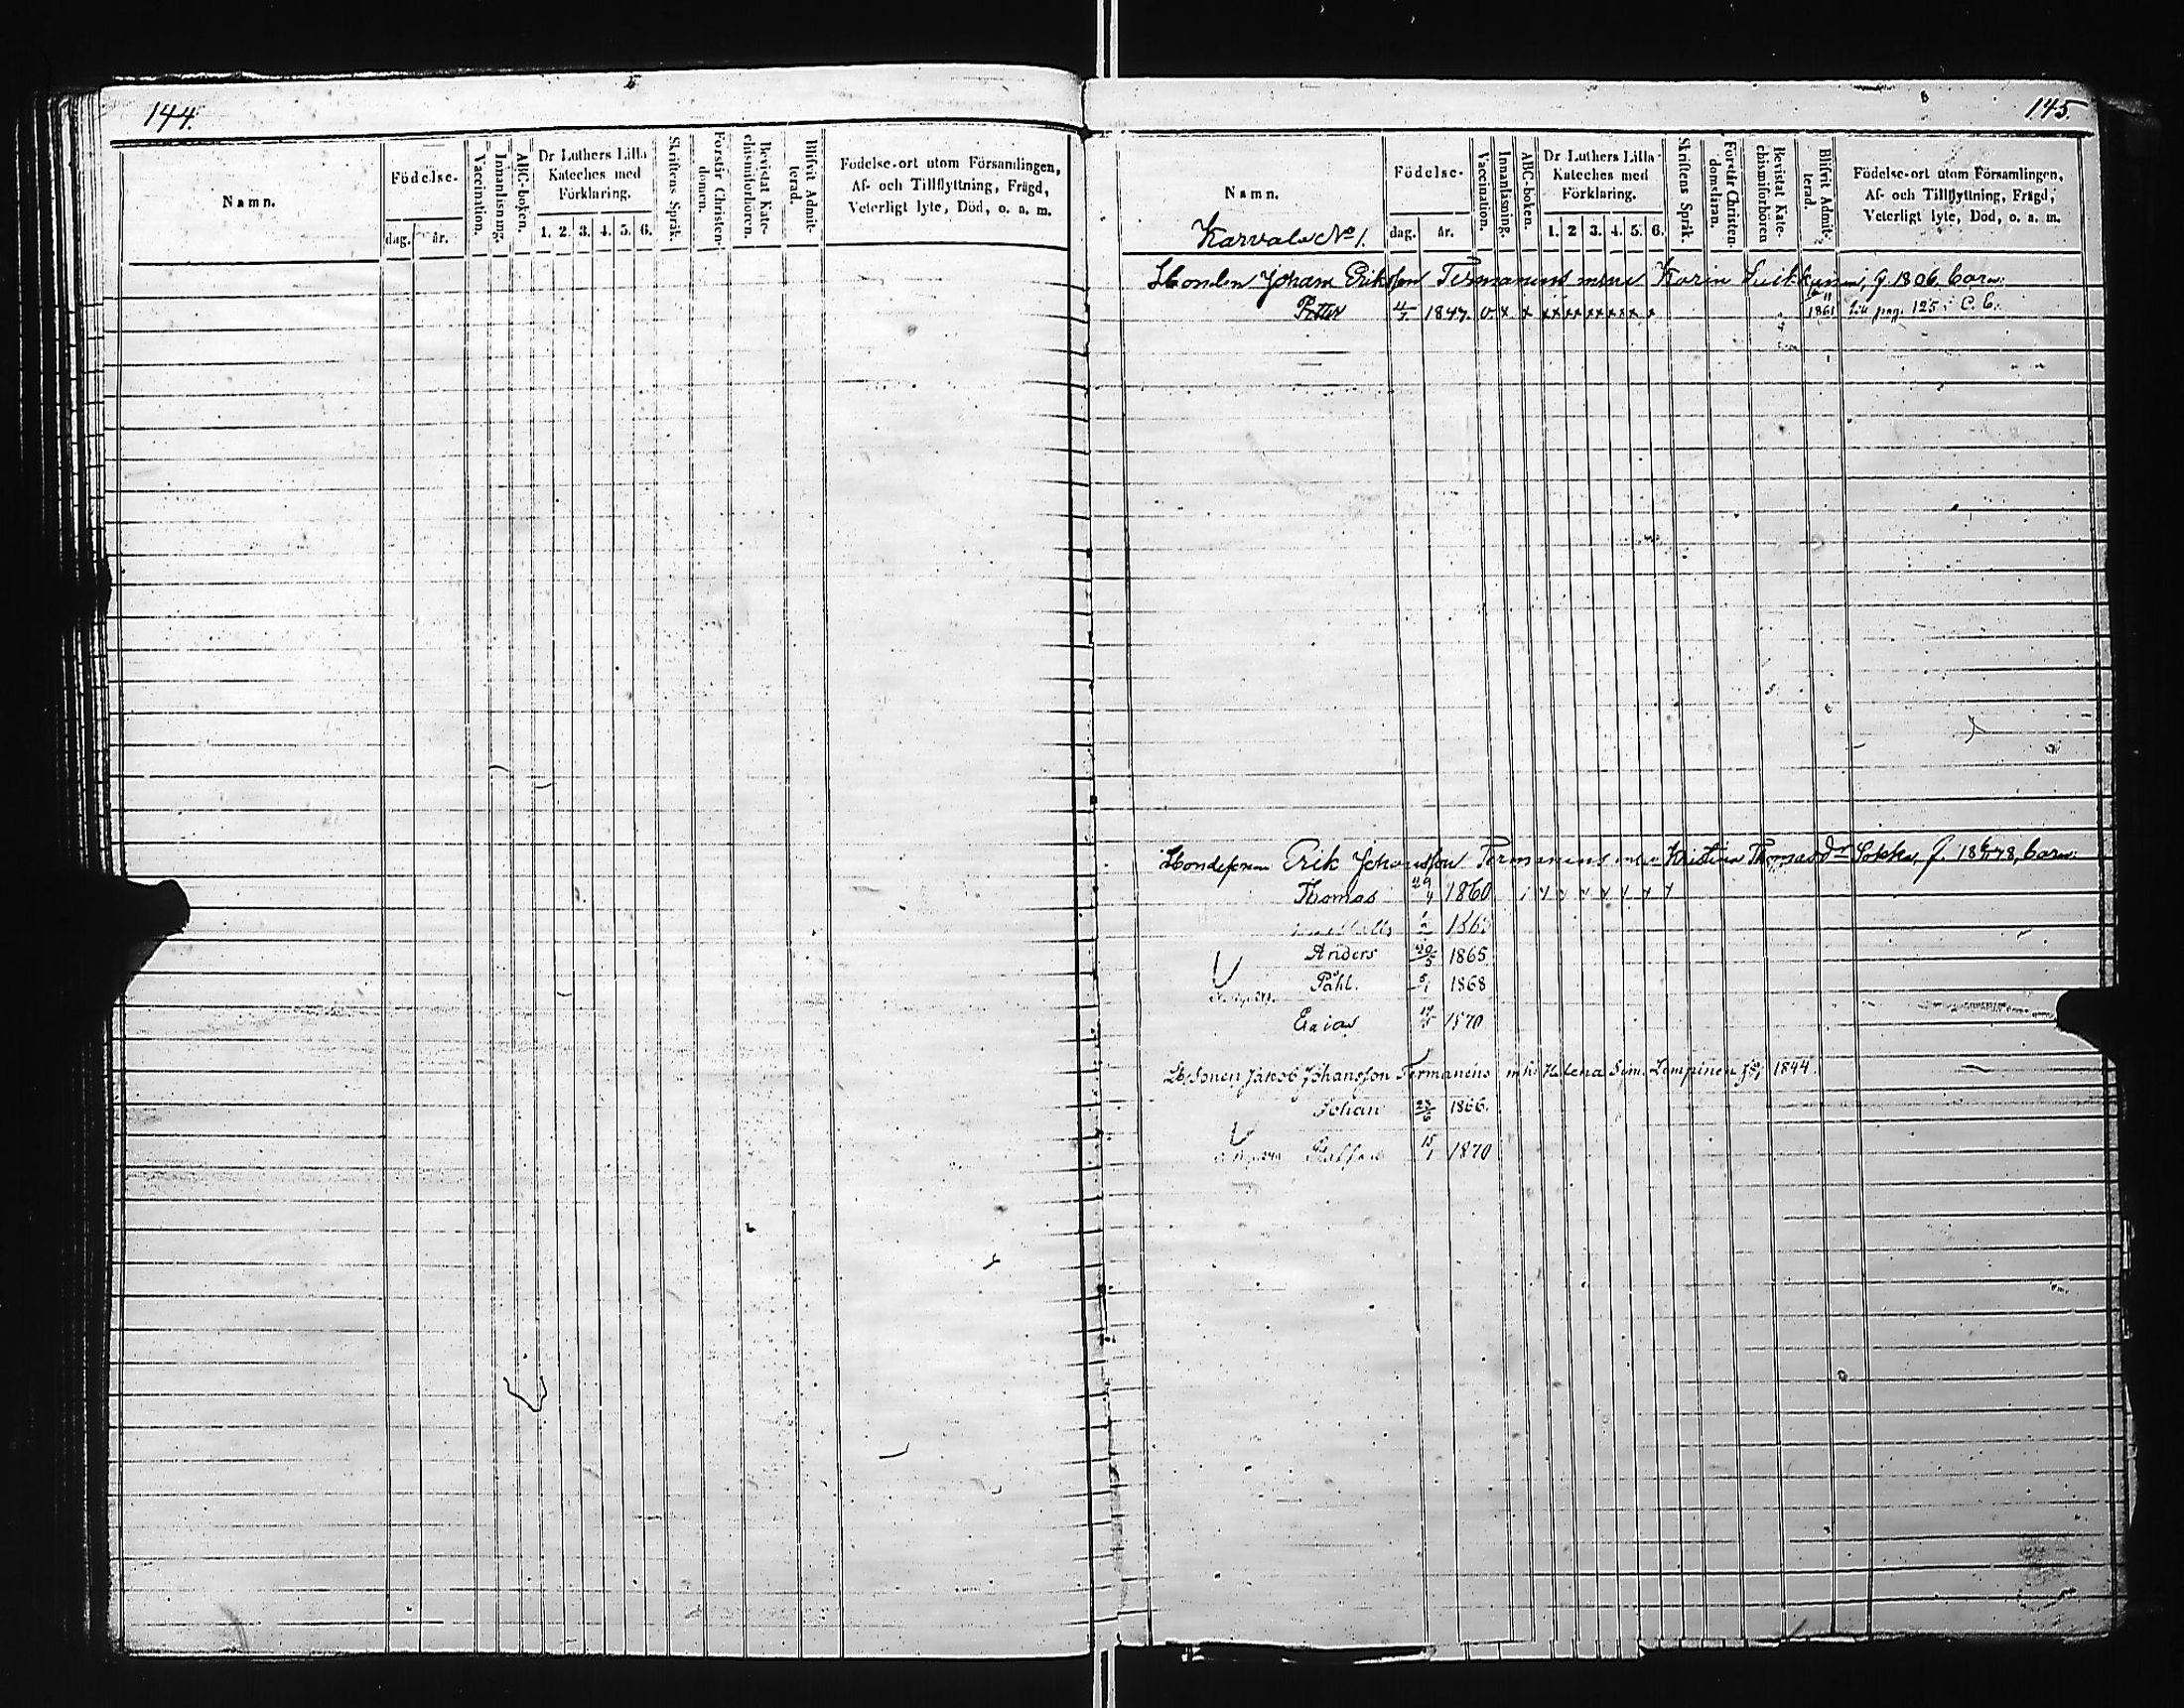 144.
Namn.
Födelse-
dag.
år.
Vaccination.
Innanläsning.
ABC-boken.
Dr Luthers Lilla
Kateches med
Förklaring.
1. 2. 3. 4. 5. 6.
Skriftens Språk.
Förstår Christen-
domen.
Bevistat Kate-
chismiförhören.
Blifvit Admit-
terad.
Födelse-ort utom Församlingen,
Af- och Tillflyttning, Frägd,
Veterligt lyte, Död, o. a. m.
145.
Namn.
Karvala No 1.
Födelse-
dag.
år.
Vaccination.
Innanläsning.
ABC-boken.
Dr Luthers Lilla
Kateches med
Förklaring.
1. 2 3. 4. 5. 6.
Skriftens Språk.
Förstår Christen-
domsläran.
Bevistat Kate-
chismiförhören
Blifvit Admit-
terad.
Födelse-ort utom Församlingen,
Af- och Tillflyttning, Frägd,
Veterligt lyte, Död, o. a. m.
Johan Eriksson Termanens Karin f. 1806. barn:
Petter 1847. v. x x xx xx xx x x x 1861 pag. 125 i C. b.
Erik Johansson Termanens Kristina Thomasdr Sokka, f. barn:
Thomas 29/4 1860
Anders 1865
Påhl. 5/1 1868
Esias 1870
Jakob Johansson Termanens Helena Sim. Lempinen 1844.
Johan 23/6 1866.
Staffan 15/1 1870